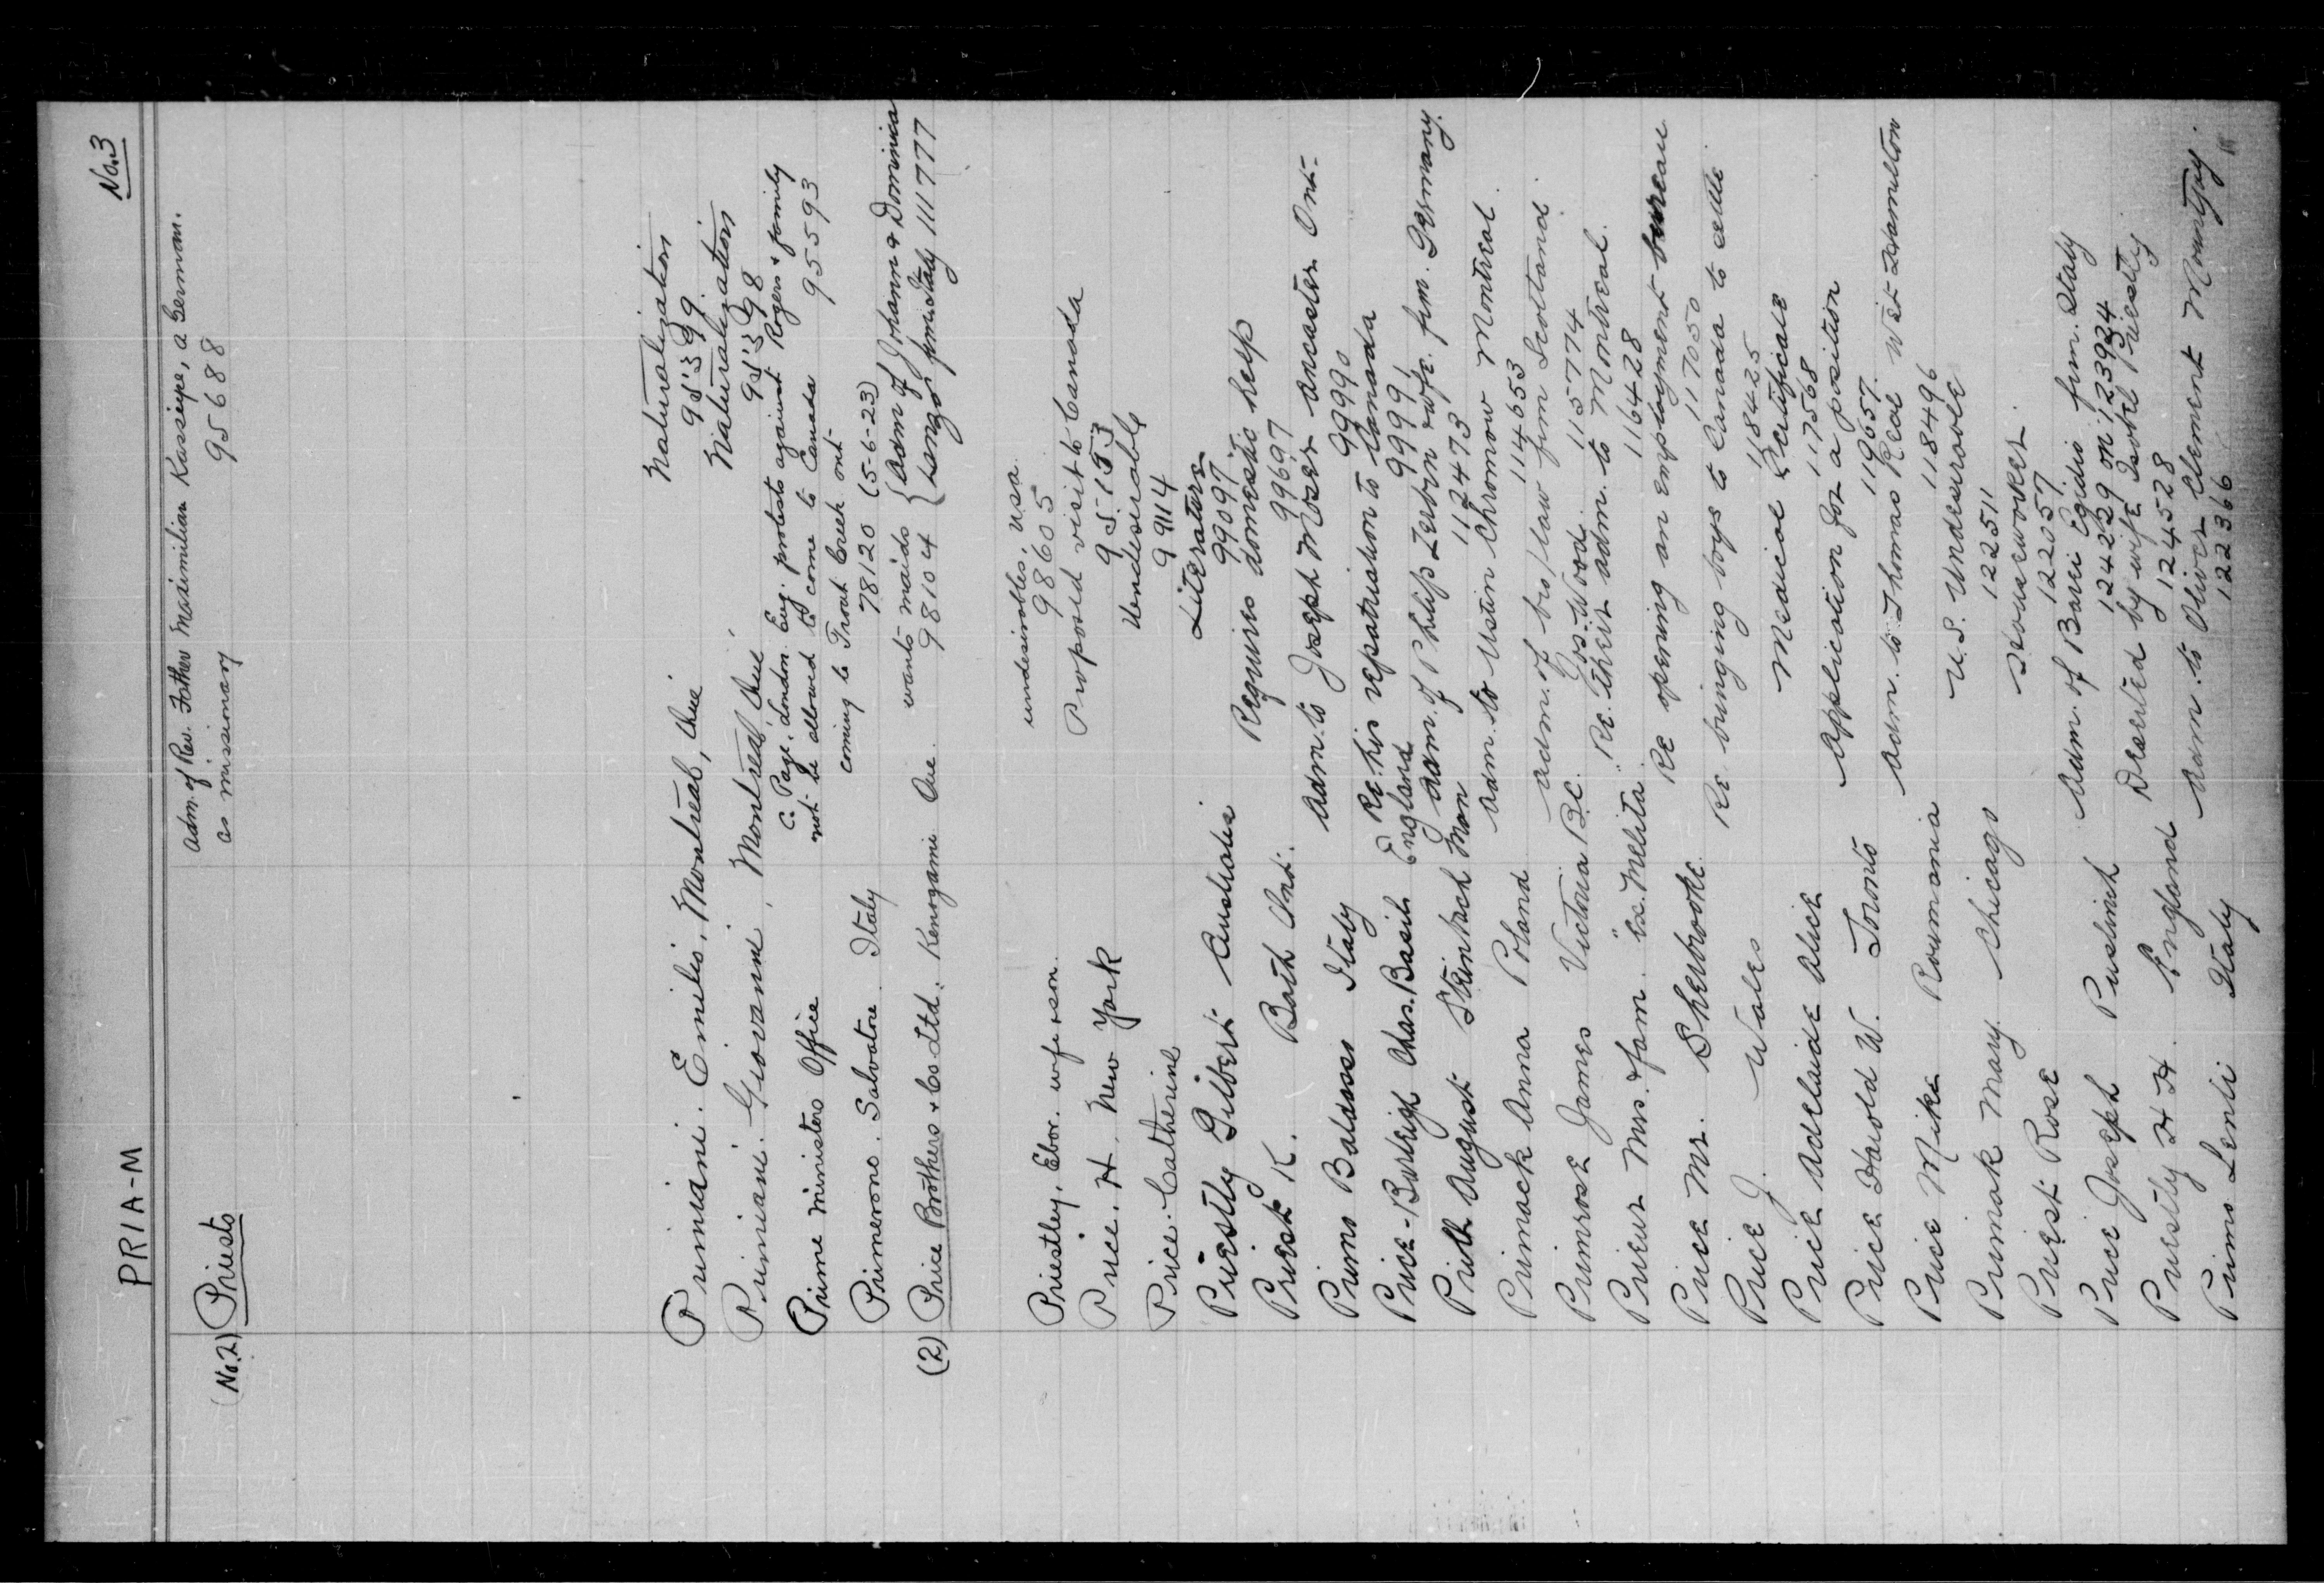 PRIA-M No.3
(No.2) Priests Adm. of Rev. Father Maximilian Kasseipe, a German.
as missionary 95688
Primiani. Emilio, Montreal, Que Naturalization
95399.
Primiani. Giovanni, Montreal, Que Naturalization
95398
Prime Ministers Office C. Page. London Eng. protests against Rogers & family
not be allowed to come to Canada 955593
coming to Trout Creek ont
Primerono. Salvatore. Italy 78120 (5-6-23)
(2) Price Brothers & Co Ltd. Kenogami Que. wants maids 98104 { adm of Johann & Dominica
from Italy 111777
Priestley, Ebor. wife & son. undesirables, USA.
98605
Price. H. New York Proposed visit to Canada
Price. Catherine Undesirable
99114
Priestly Gilbert Australia Literature
99097.
Priest K. Bath Ont. Requires domestic help
99697
Primo Baldasso Italy Adm. to Joseph Moser Ancaster Ont-
99990
Price-Burleigh Chas. Basil England Re. his repatriation to Canada
99991
Prith August Steinbach Man Adm. of Philip Zerbin & wife. frm. Germany.
112473
Primack Anna Poland Adm. to Ustin Chromow Montreal.
114653
Primrose James Victoria B.C. Adm. of bro/law frm Scotland.
Jos. Wood. 115774
Prieur Mrs. & fam. "ex. Melita". Re. their adm. to Montreal.
116428
Price Mr. Sherbrooke. Re opening an employment bureau
117050
Price J. Wales Re bringing boys to Canada to settle.
118425
Price Adelaide Alice Medical Certificate
117568
Price Harold W. Toronto Application for a position
119657.
Price Mike Roumania Adm. to Thomas Real West Hamilton
118496
Primak Mary. Chicago U.S. Undesirable
122511
Priest Rose Houseworker.
122057
Price Joseph Puslinch Adm. of Barei Egidio frm. Italy
124229 on 123924
Priestly H H. England Deserted by wife Isobel Priestly
124528
Primo Lenti Italy Adm. to Oliver Clement Mountjoy.
122366